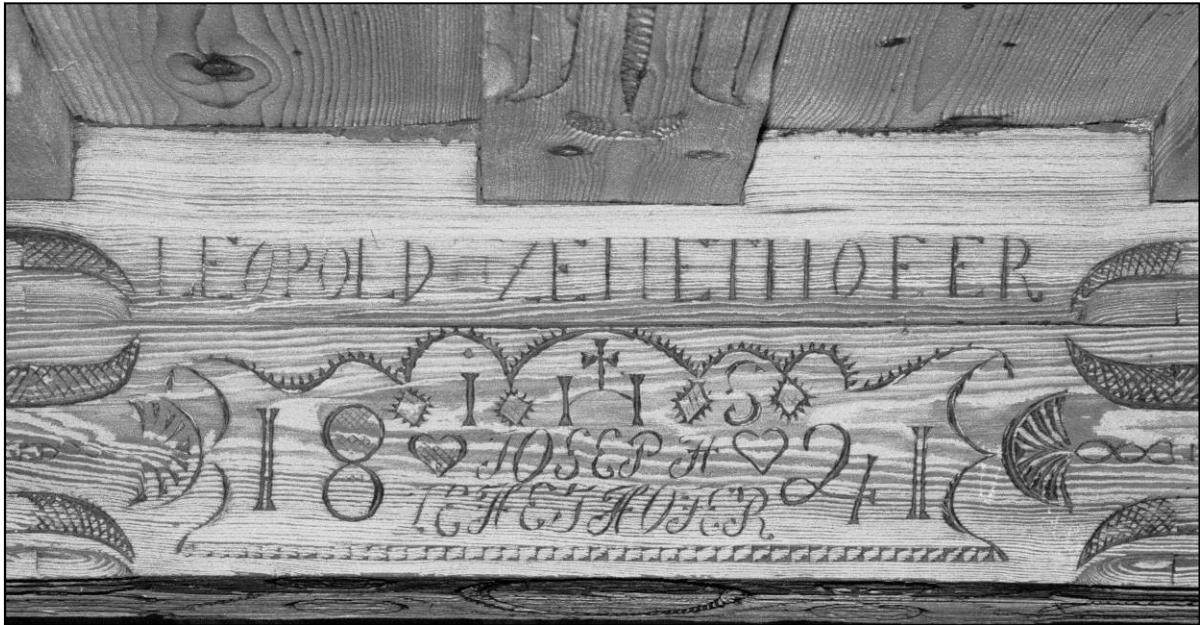 LEOPOLD ZEHETHOFER
IHS
18 ♥ IOSEPH ♥ 41
ZEHETHOFER